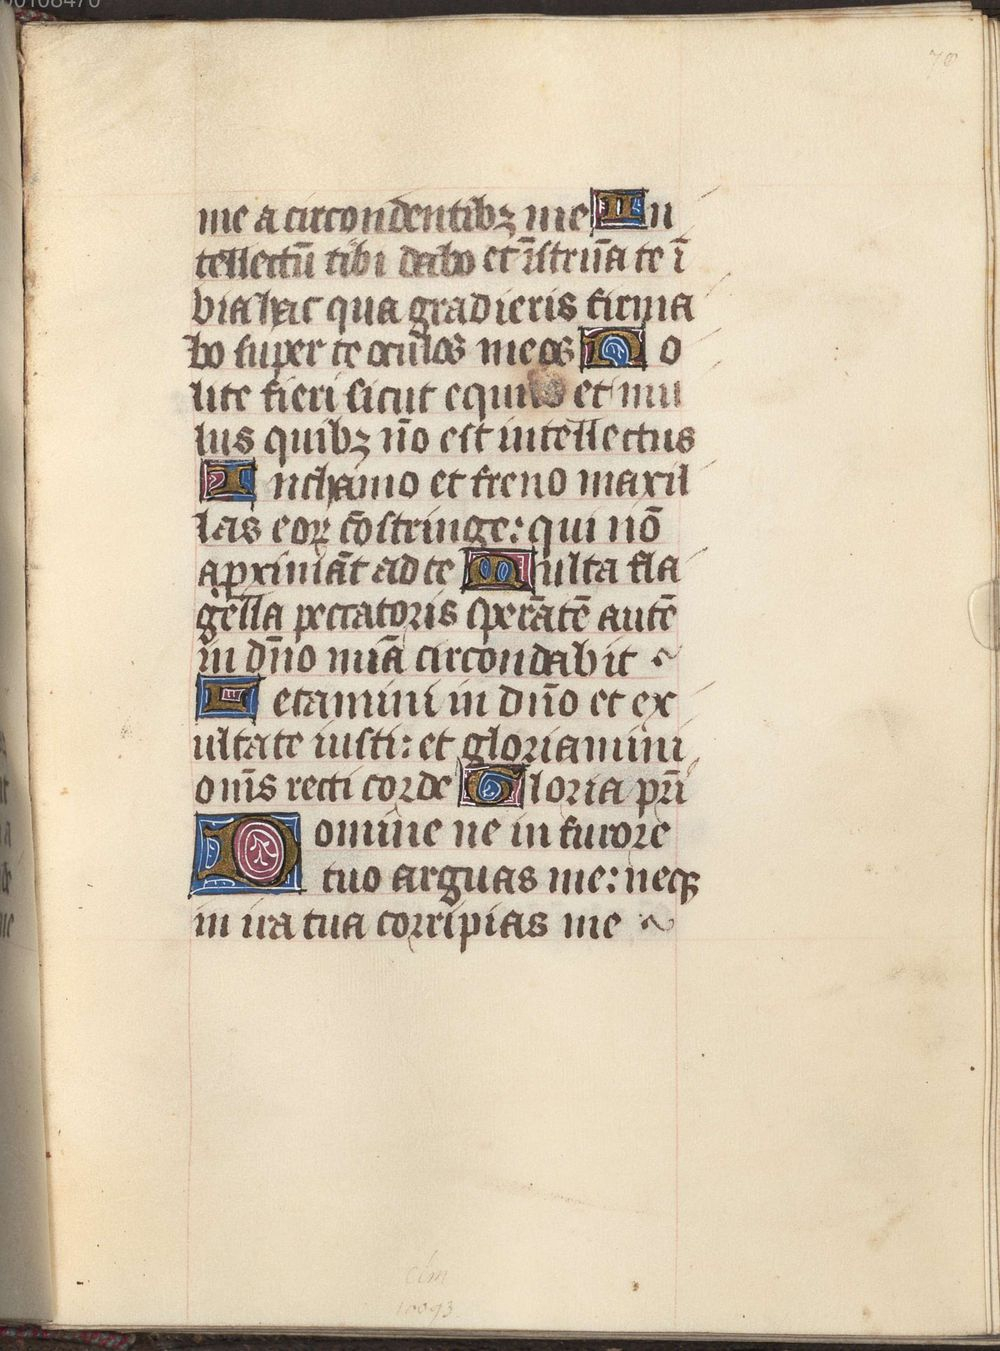 70
me a circondentibꝫ me In
tellectū tibi dabo et īstruā te ī
bia hac qua gradieris firma
bo super te oculos meos No
lite fieri sicut equus et mu
lus quibꝫ nō est intellectus
In chamo et freno maxil
las eoꝝ cōstringe: qui nō
aꝓximāt ad te Multa fla
gella peccatoris sperātē autē
in dn̄o mīa circondabit
Letamini in dn̄o et ex
ultate iusti: et gloriamini
om̄s recti corde Gloria pr̄i
Domine ne in furore
tuo arguas me: neqꝫ
in ira tua corripias me
Clm
10093